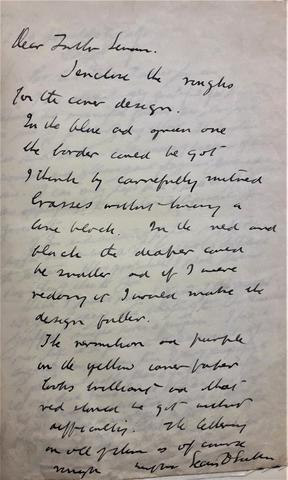 Dear Father Senan.
I enclose the roughs
for the cover design.
In the blue and green one
the border could be got
I think by carefully mitred
brasses without having a
line block. In the red and
black the diaper could
be smaller and if I were
redoing it I would make the
design fuller.
The vermilion and purple
on the yellow cover paper
looks brilliant and that
red should be got without
difficulty. The lettering
on all of them is of course
rough